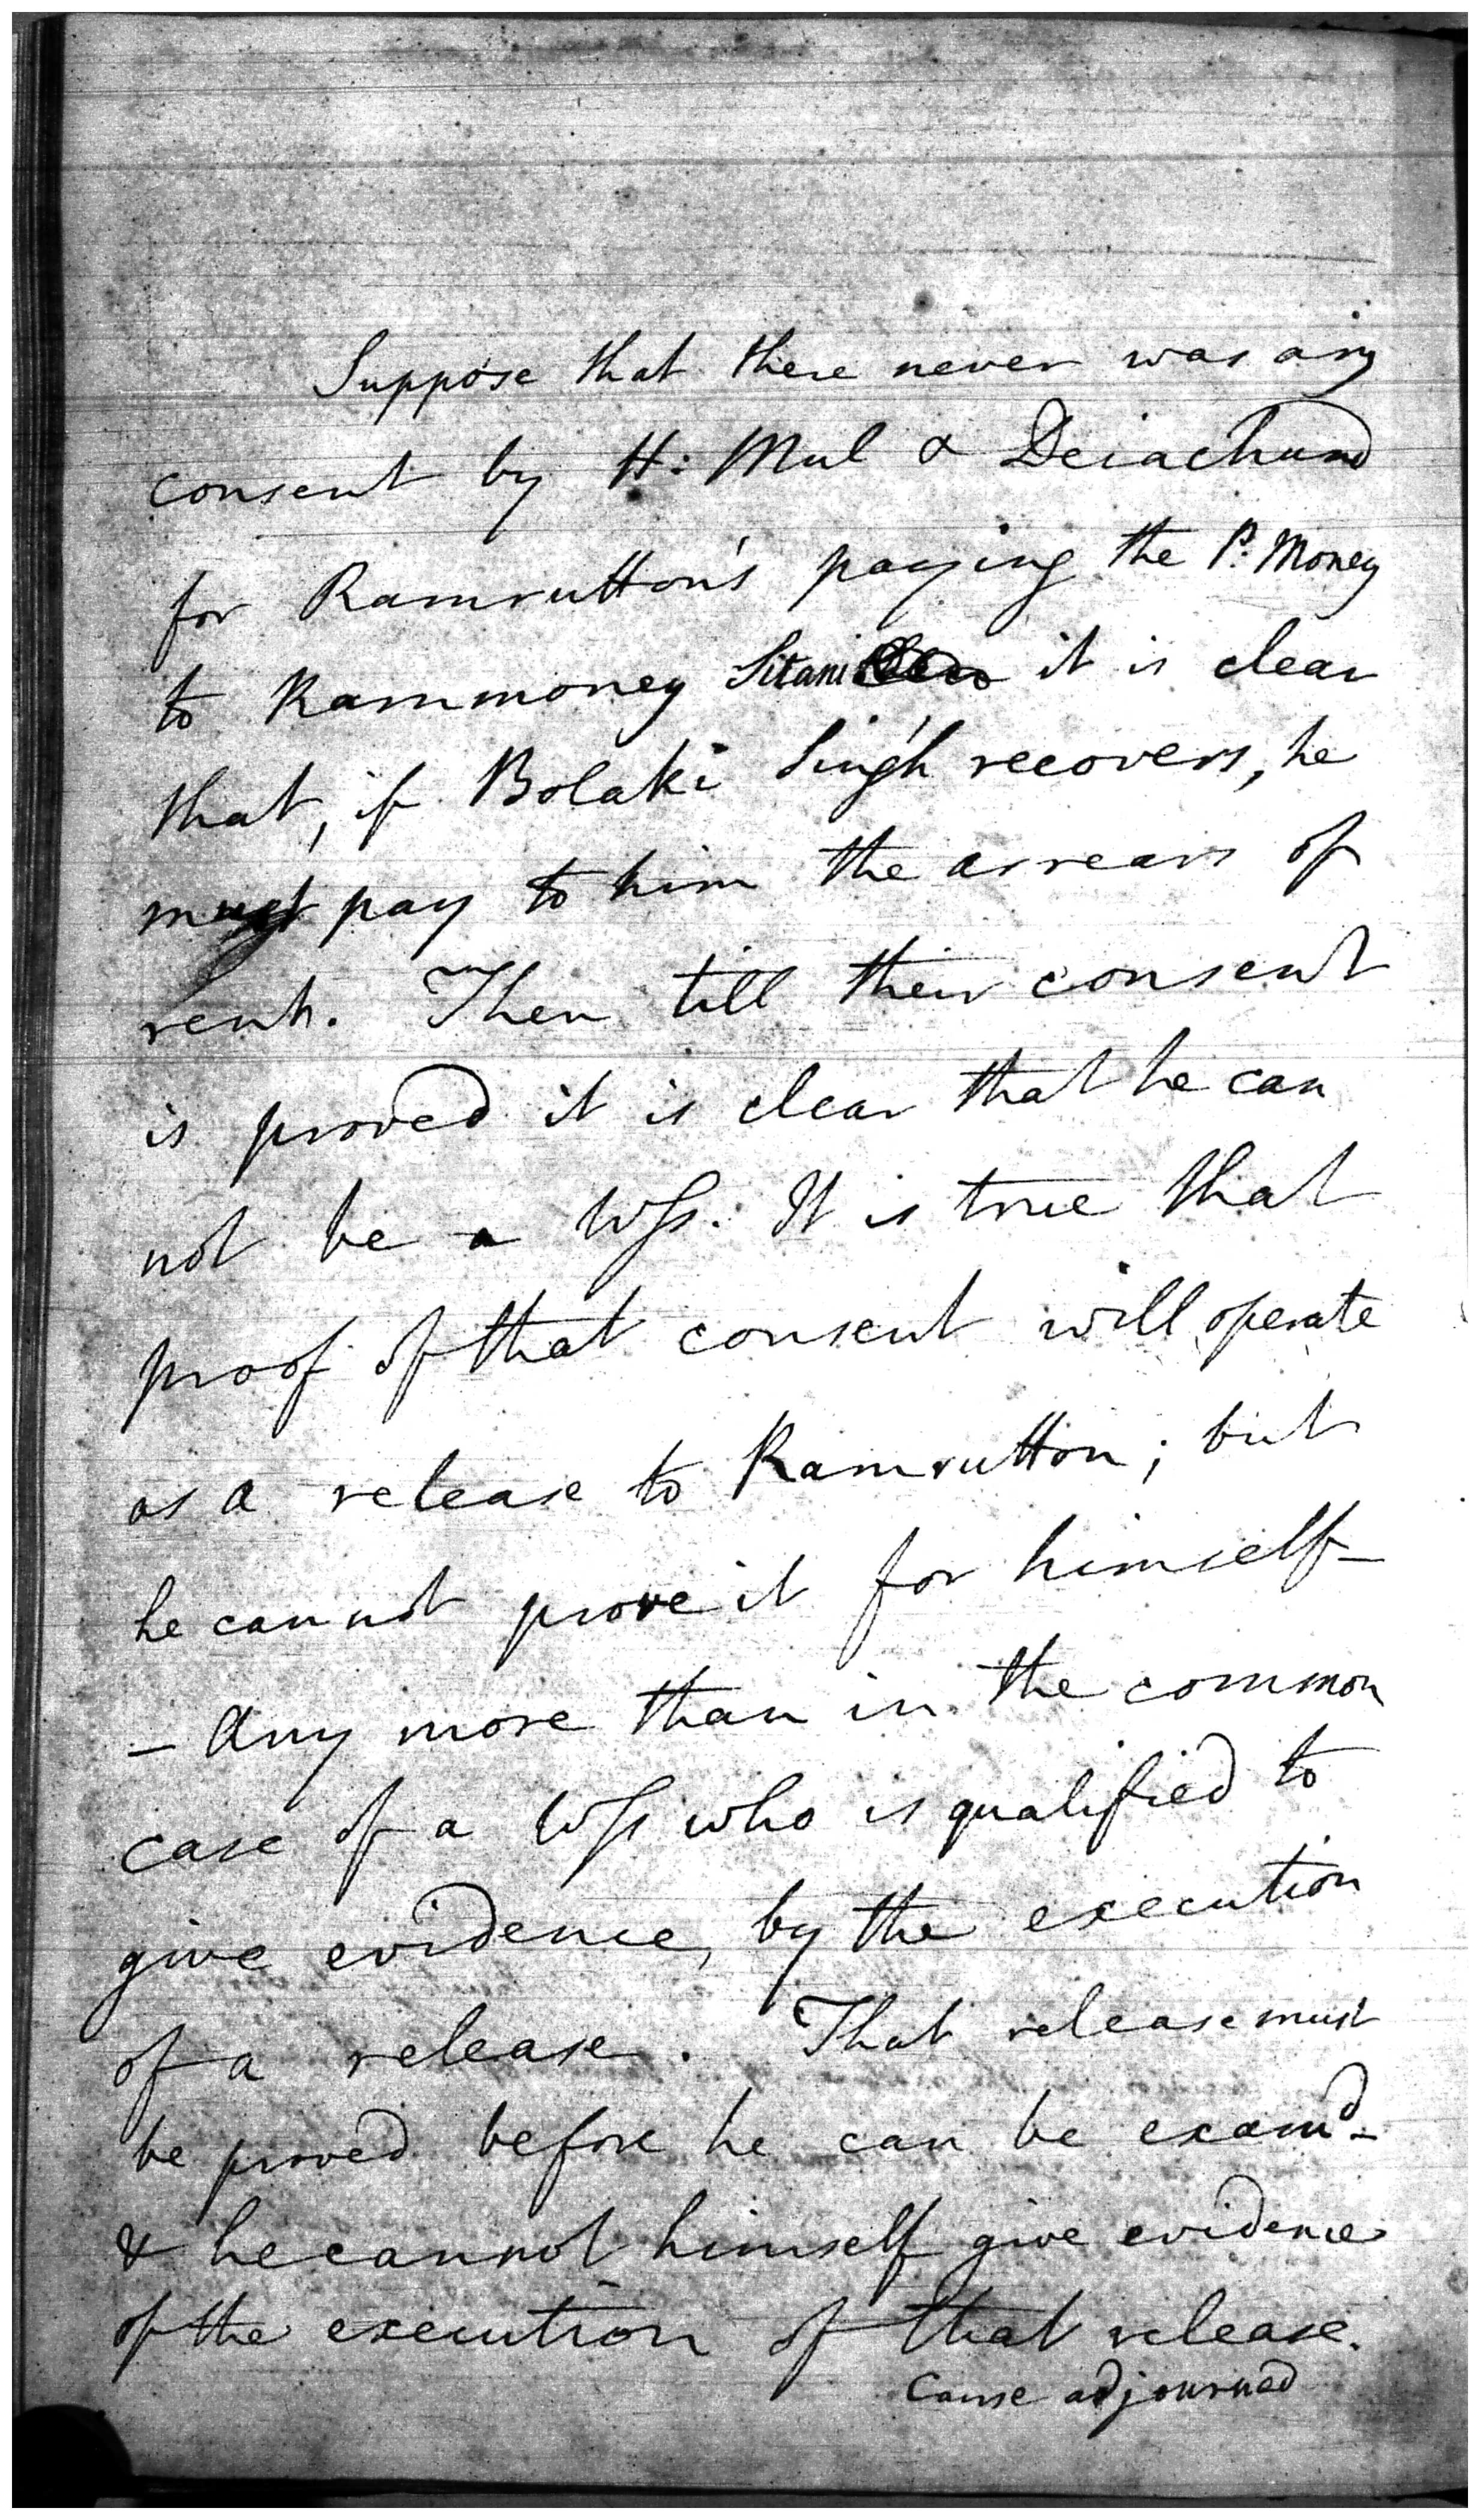 Suppose that there never was any
consent by H: Mul & Deiachund
for Ramrutton's paying the P. Money
to Rammoney Sitani it is clear
that, if Bolaki Singh recovers, he
must pay to him the arrears of
rent. Then till their consent
is proved it is clear that he can
not be a Wss. It is true that
proof of that consent will operate
as a release to Ramrutton; but
he cannot prove it for himself —
— Any more than in the common
case of a Wss who is qualified to
give evidence, by the execution
of a release. That release must
be proved before he can be examd -
& he cannot himself give evidence
of the execution of that release.
Cause adjourned